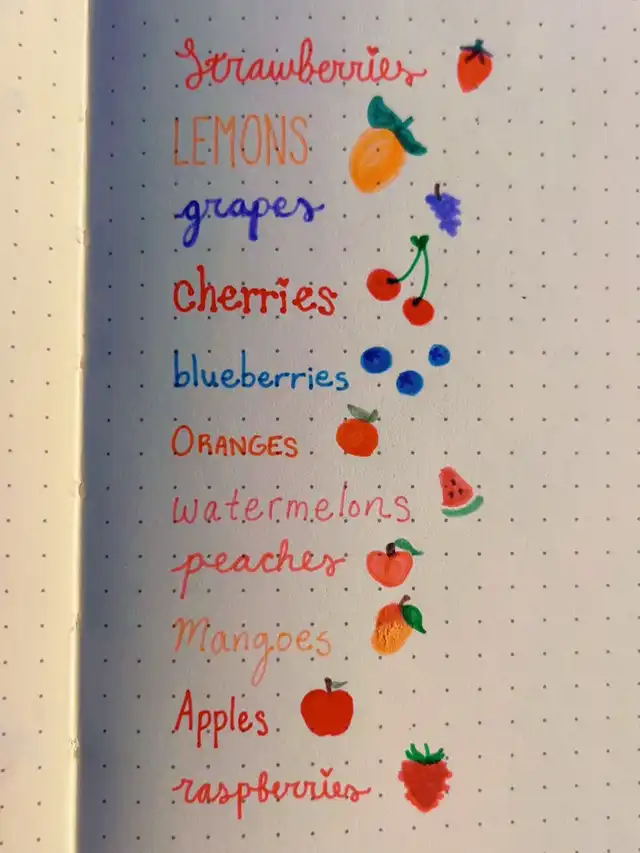 Strawberries
LEMONS
grapes
cherries
blueberries
ORANGES
watermelons
peaches
Mangoes
Apples
raspberries